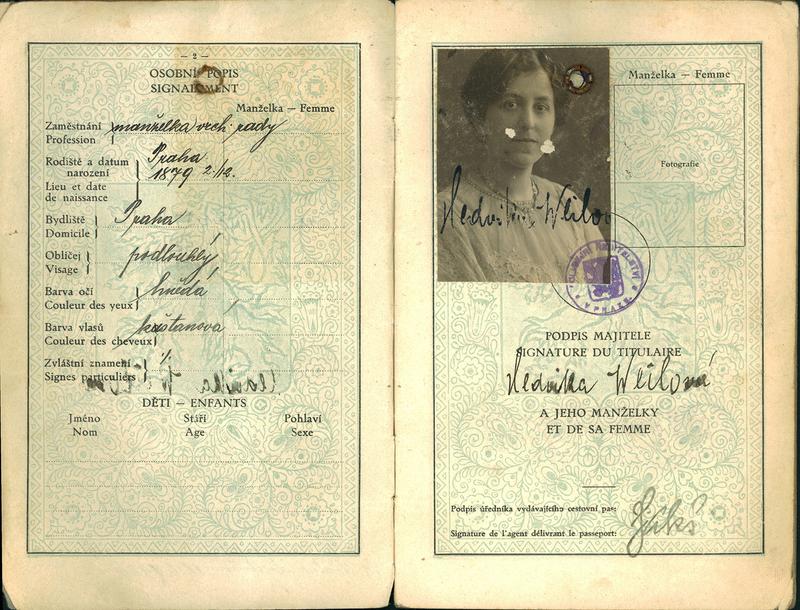 — 2 —
OSOBNÍ POPIS
SIGNALEMENT
Manželka — Femme
Zaměstnání manželka vrch. rady
Profession
Rodiště a datum narození Praha
1879 2./12.
Lieu et date de naissance
Bydliště Praha
Domicile
Obličej podlouhlý
Visage
Barva očí hnědá
Couleur des yeux
Barva vlasů kaštanová
Couleur des cheveux
Zvláštní znamení
Signes particuliers
DĚTI — ENFANTS
Jméno Stáří Pohlaví
Nom Age Sexe
Manželka — Femme
Fotografie
Hedvika Weilov
V PRAZE
PODPIS MAJITELE
SIGNATURE DU TITULAIRE
Hedvika Weilová
A JEHO MANŽELKY
ET DE SA FEMME
Podpis úředníka vydávajícího cestovní pas:
Signature de l'agent délivrant le passeport: